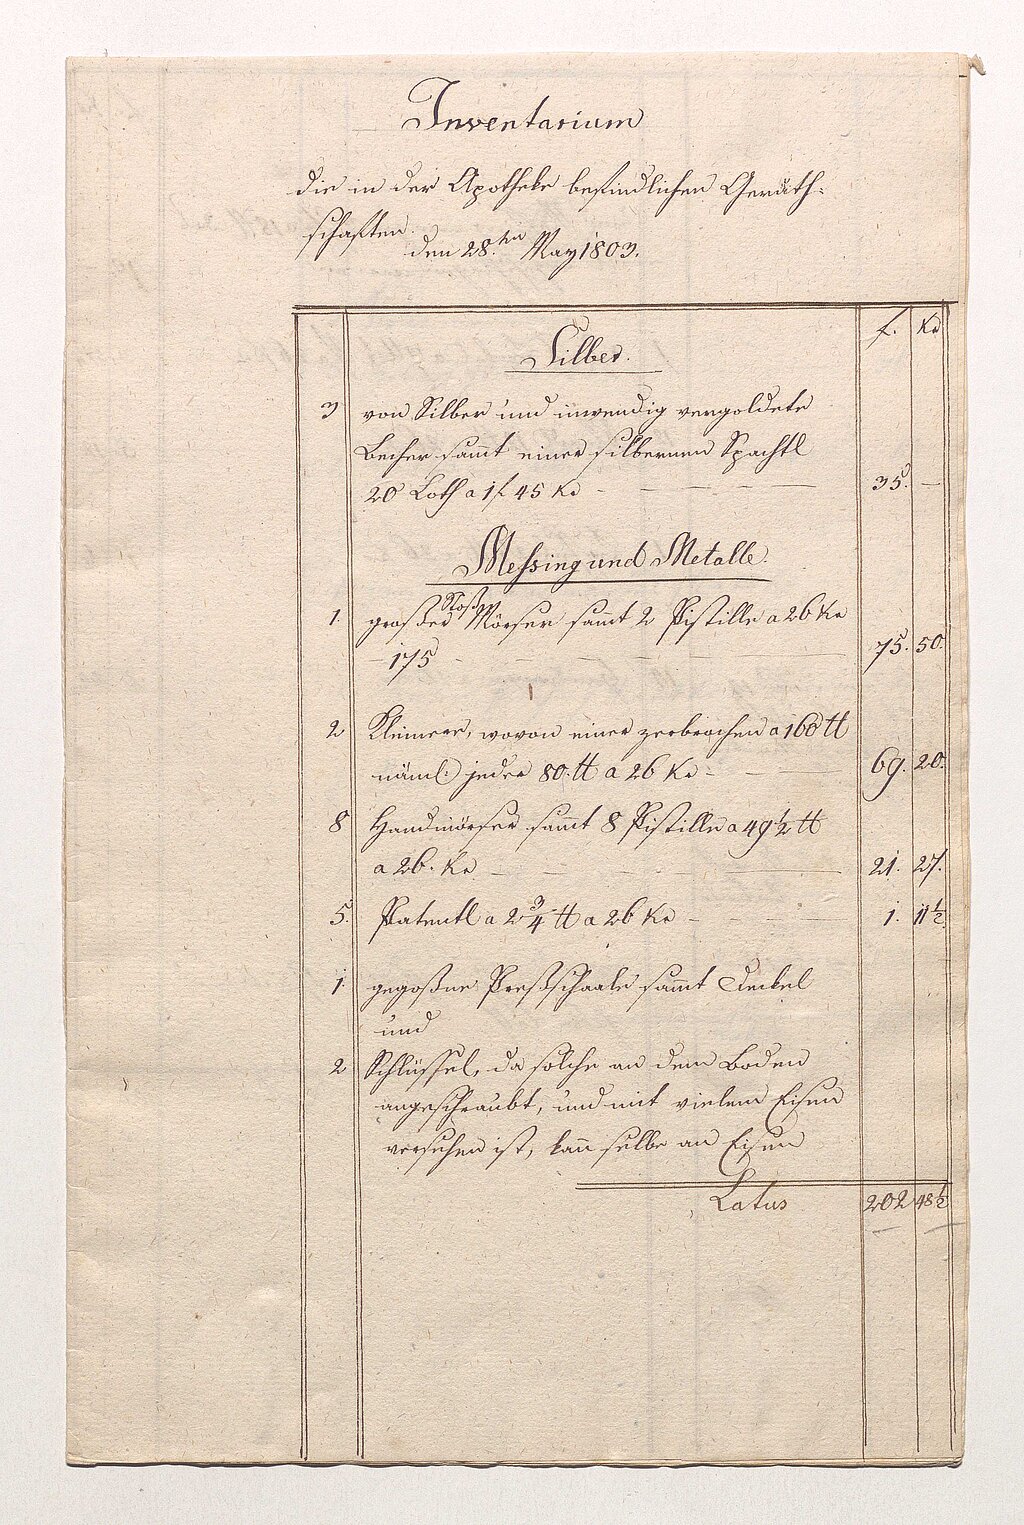 Inventarium
die in der Apotheke befindlichen Geräth-
schaften.
den 28.ten May 1803.
f. Kr
Silber.
3 von Silber und inwendig vergoldete
Becher sammt einer silbernen Spachtl
20 Loth a 1 f 45 Kr — — — — 35. —
Messing und Metalle.
1. großer Stoß Mörser sammt 2 Pistille a 26 Kr
175 — — — — 75. 50.
2 Kleinere, wovon einer zerbrochen a 160 ℔
näml: jeder 80. ℔ a 26 Kr — — — 69. 20.
8 Handmörser sammt 8 Pistille a 49 1/2 ℔
a 26. Kr — — — — 21. 27.
5. Patentl a 2 3/4 ℔ a 26 Kr — — — 1. 11 1/2.
1. gegoßne Preßschaale sammt Deckel
und
2 Schlüssel, da solche an dem Boden
angeschraubt, und mit vielem Eisen
versehen ist, kann selbe an Eisen
Latus 202 48 1/2